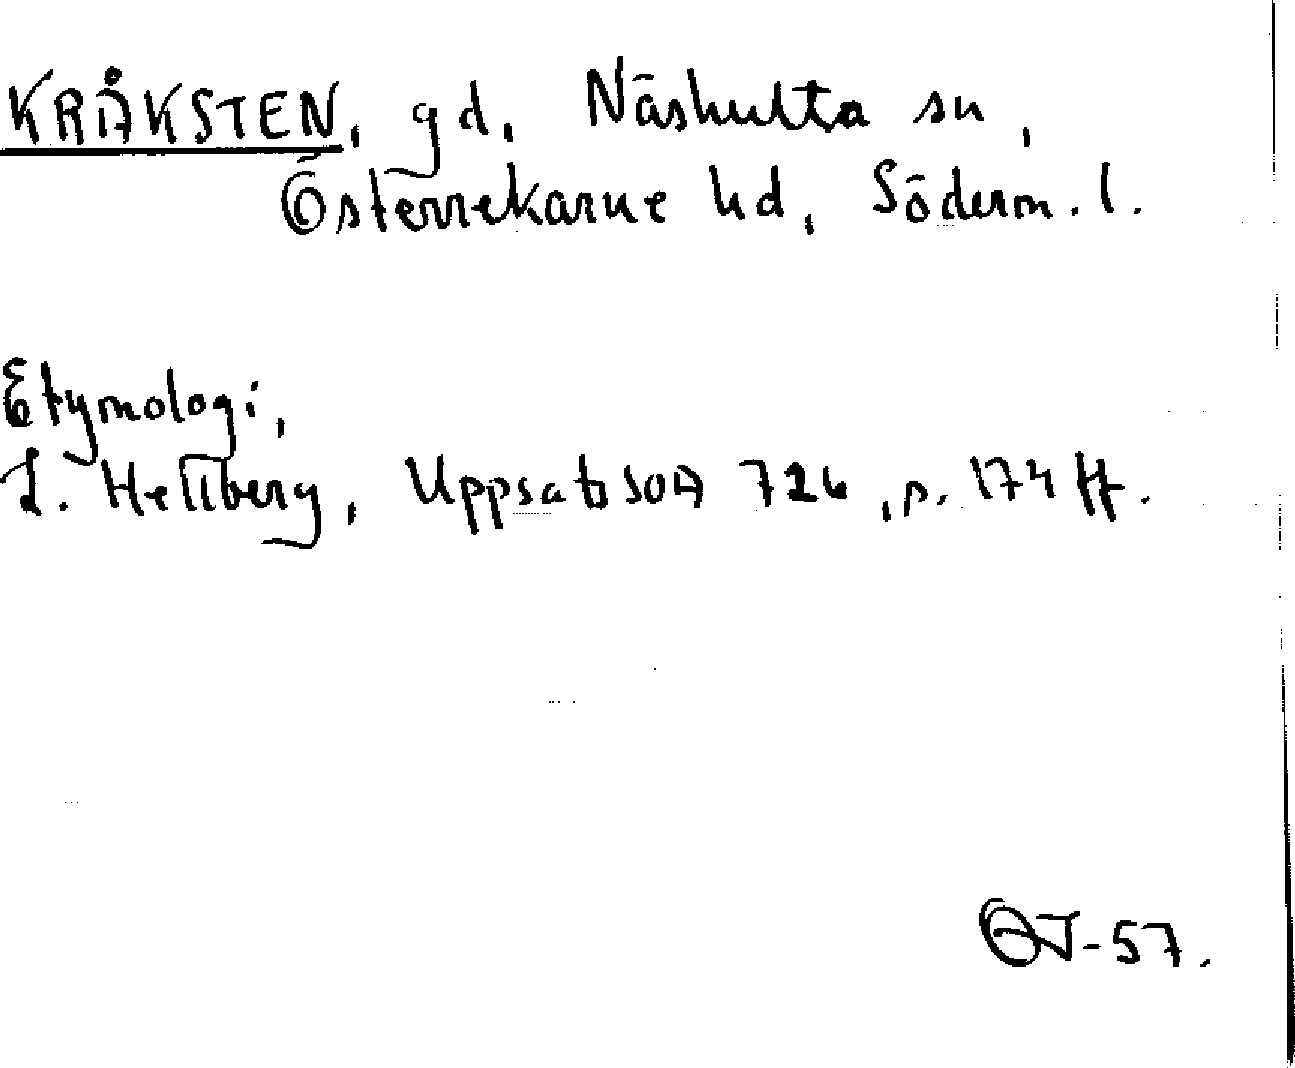 KRÅKSTEN, gd, Näshulta sn,
Österrekarne hd, Söderm. l.
Etymologi,
L. Hellberg, Uppsats SOA 726, s. 174 ff.
OJ-57.